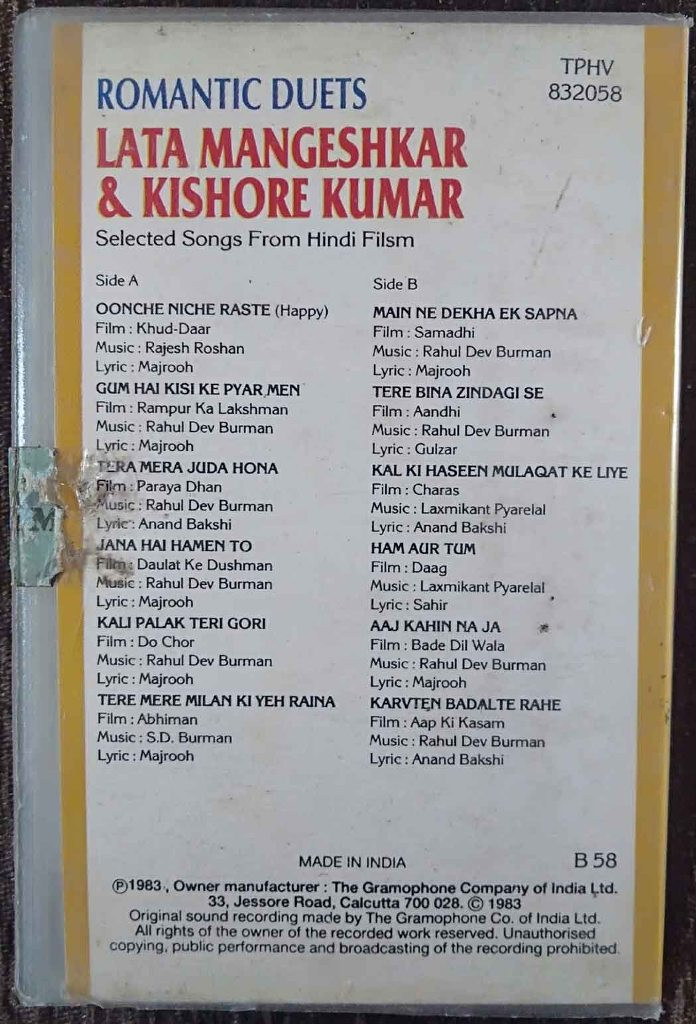 TPHV
832058
ROMANTIC DUETS
LATA MANGESHKAR
& KISHORE KUMAR
Selected Songs From Hindi Filsm
Side A
OONCHE NICHE RASTE (Happy)
Film : Khud-Daar
Music : Rajesh Roshan
Lyric : Majrooh
GUM HAI KISI KE PYAR MEN
Film : Rampur Ka Lakshman
Music : Rahul Dev Burman
Lyric : Majrooh
TERA MERA JUDA HONA
Film : Paraya Dhan
Music : Rahul Dev Burman
Lyric : Anand Bakshi
JANA HAI HAMEN TO
Film : Daulat Ke Dushman
Music : Rahul Dev Burman
Lyric : Majrooh
KALI PALAK TERI GORI
Film : Do Chor
Music : Rahul Dev Burman
Lyric : Majrooh
TERE MERE MILAN KI YEH RAINA
Film : Abhiman
Music : S.D. Burman
Lyric : Majrooh
Side B
MAIN NE DEKHA EK SAPNA
Film : Samadhi
Music : Rahul Dev Burman
Lyric : Majrooh
TERE BINA ZINDAGI SE
Film : Aandhi
Music : Rahul Dev Burman
Lyric : Gulzar
KAL KI HASEEN MULAQAT KE LIYE
Film : Charas
Music : Laxmikant Pyarelal
Lyric : Anand Bakshi
HAM AUR TUM
Film : Daag
Music : Laxmikant Pyarelal
Lyric : Sahir
AAJ KAHIN NA JA
Film : Bade Dil Wala
Music : Rahul Dev Burman
Lyric : Majrooh
KARVTEN BADALTE RAHE
Film : Aap Ki Kasam
Music : Rahul Dev Burman
Lyric : Anand Bakshi
MADE IN INDIA
B 58
Ⓟ1983, Owner manufacturer : The Gramophone Company of India Ltd.
33, Jessore Road, Calcutta 700 028. © 1983
Original sound recording made by The Gramophone Co. of India Ltd.
All rights of the owner of the recorded work reserved. Unauthorised
copying, public performance and broadcasting of the recording prohibited.